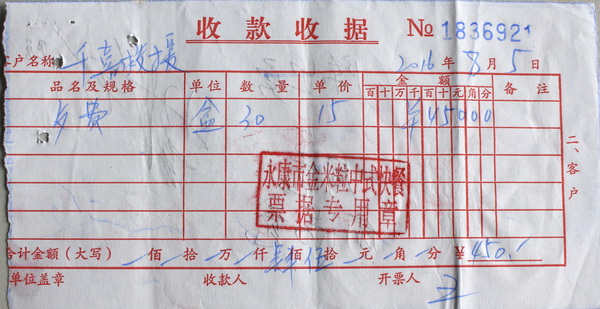 收款收据 № 1836921
客户名称 千喜救援 2016年8月5日
品名及规格 单位 数量 单价 金额 备注
百十万千百十元角分
餐费 盒 30 15 ¥45000
永康市金米粒中式快餐
票据专用章
合计金额（大写） 佰 拾 万 仟肆佰伍拾 元 角 分 ¥450.
单位盖章 收款人 开票人 王
二、客户